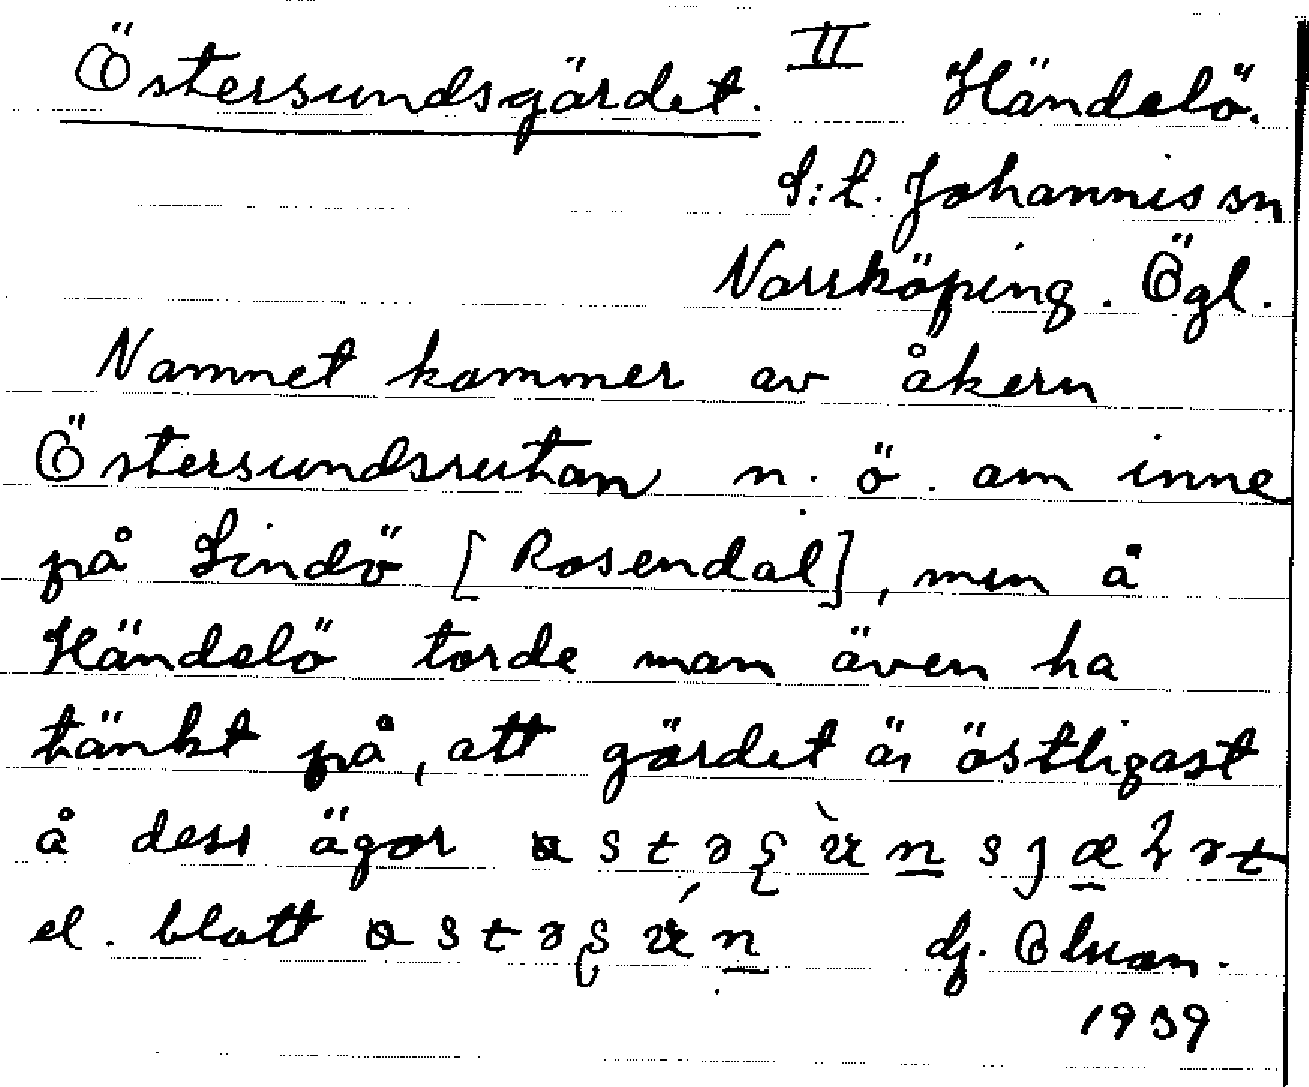 Östersundsgärdet. II Händelö.
S:t. Johannis sn
Norrköping. Ögl.
Namnet kommer av åkern
Östersundsrutan n. ö. om inne
på Lindö [Rosendal], men å
Händelö torde man även ha
tänkt på, att gärdet är östligast
å dess ägor
el. blott dj. Elvan.
1939